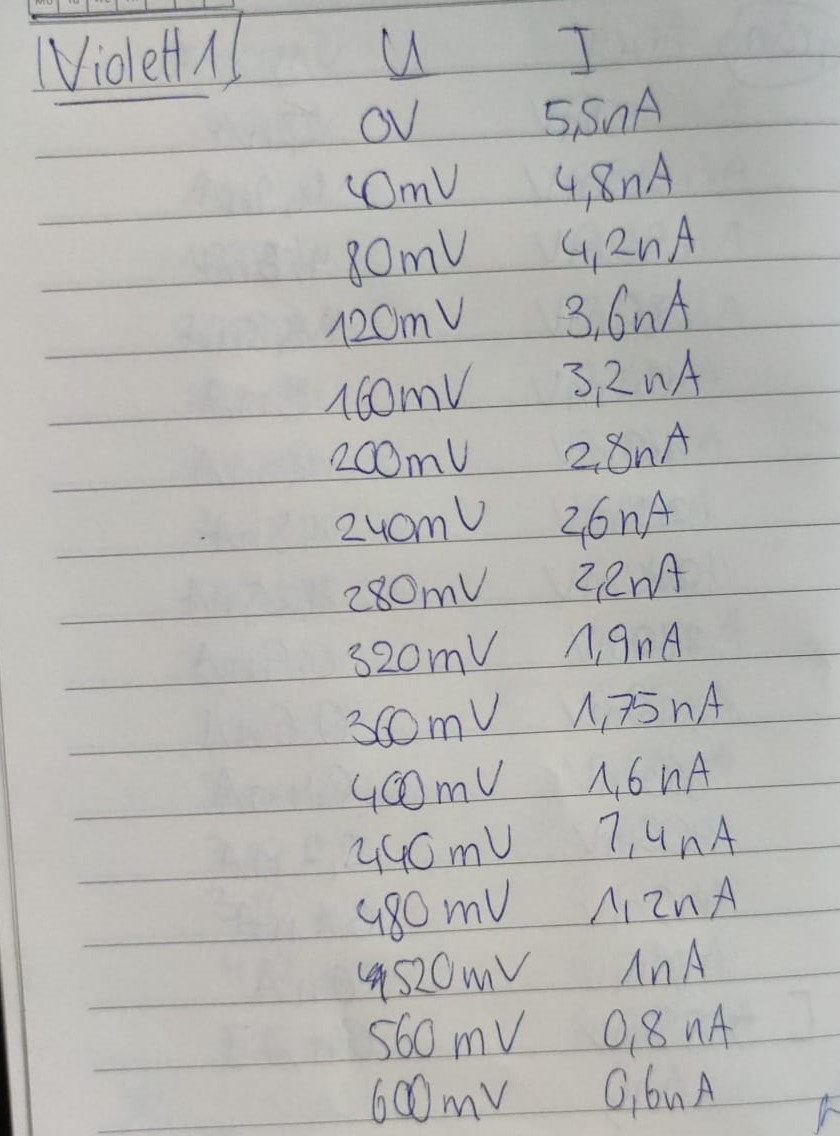 Violett 1 U I
0V 5,5nA
40mV 4,8nA
80mV 4,2nA
120mV 3,6nA
160mV 3,2nA
200mV 2,8nA
240mV 2,6nA
280mV 2,2nA
320mV 1,9nA
360mV 1,75nA
400mV 1,6nA
440mV 1,4nA
480mV 1,2nA
520mV 1nA
560mV 0,8nA
600mV 0,6nA